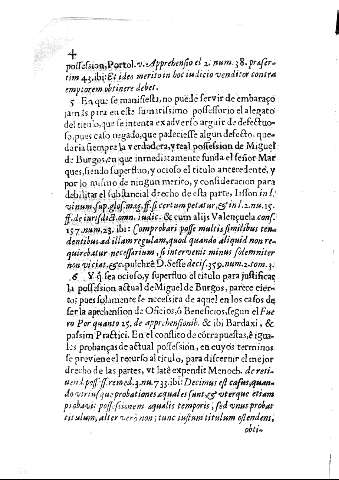 4
possession, Portol. v. Apprehensio el 2. num. 38. præser-
tim 43. ibi: Et ideo merito in hoc iudicio venditor contra
emptorem obtinere debet.
5 En que se manifiesta, no puede servir de embaraço
jamàs para en este sumatissimo possessorio el alegato
del titulo, que se intenta ex adverso arguir de defectuo-
so, pues caso negado, que padeciesse algun defecto, que-
daria siempre la verdadera, y real possession de Miguel
de Burgos, en que inmediatamente funda el señor Mar
ques, siendo superfluo, y ocioso el titulo antecedente, y
por lo mismo de ningun merito, y consideracion para
debilitar el substancial drecho de esta parte, Iasson in l.
vinum, sup. glos. mag. ff. si certum petatur, & in l. 2. num. 15.
ff. de iurisdict. omn. iudic. & cum alijs Valençuela cons.
157. num. 23. ibi: Comprobari posse multis similibus ten-
dentibus ad illam regulam, quod quando aliquid non re-
quirebatur necessarium, si intervenit minus solemniter
non viciat, &c. pulchrè D. Sesse decis. 359. num. 2. tom. 3.
6 Y q̃ sea ocioso, y superfluo el titulo para justificar
la possession actual de Miguel de Burgos, parece cier-
to, pues solamente se necesita de aquel en los casos de
ser la aprehension de Oficios, ò Beneficios, segun el Fue
ro Por quanto 25. de apprehensionib. & ibi Bardaxi, &
passim Practici. En el conflicto de contrapuestas, è igua-
les probanças de actual possession, en cuyos terminos
se previene el recurso al titulo, para discernir el mejor
drecho de las partes, vt latè expendit Menoch. de reti-
nend. poss. remed. 3. nu. 733. ibi: Decimus est casus, quan-
do vtriusque probationes æquales sunt, & vterque etiam
probavit possessionem æqualis temporis, sed vnus probat
titulum, alter verò non; tunc iustum titulum ostendens,
obti-